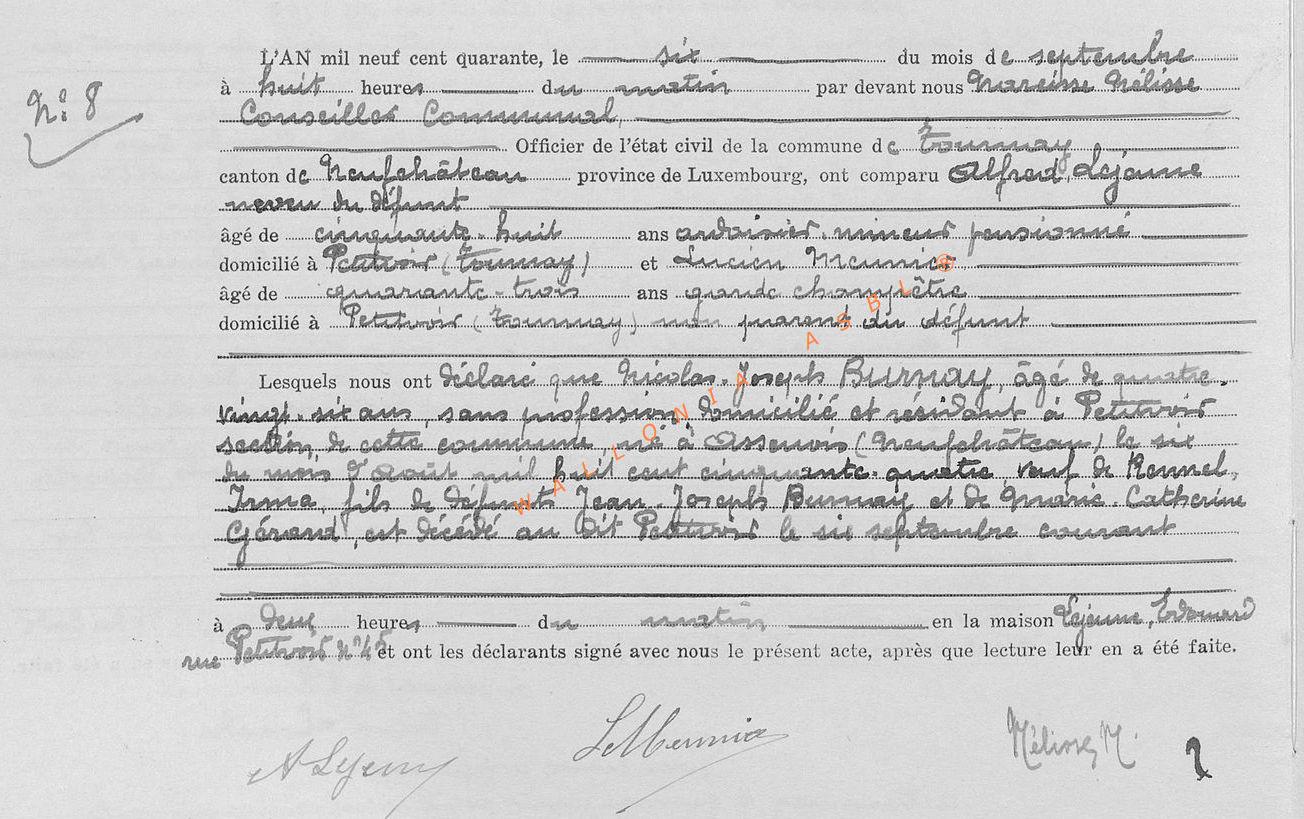 L'AN mil neuf cent quarante, le six du mois de septembre
N° 8
à huit heures du matin par devant nous Narcisse Mélisse
Conseiller Communal,
Officier de l'état civil de la commune de Tournay
canton de Neufchâteau province de Luxembourg, ont comparu Alfred Lejeune
neveu du défunt
âgé de cinquante-huit ans ardoisier-mineur pensionné
domicilié à Petitvoir (Tournay) et Lucien Meunier
âgé de quarante-trois ans garde champêtre
domicilié à Petitvoir (Tournay) non parent du défunt
Lesquels nous ont déclaré que Nicolas-Joseph Burnay, âgé de quatre-
vingt-six ans, sans profession, domicilié et résidant à Petitvoir
section de cette commune né à Assenois (Neufchâteau) le six
du mois d'août mil huit cent cinquante-quatre, veuf de Rennel,
Irma, fils de défunts Jean-Joseph Burnay et de Marie-Catherine
Gérard, est décédé au dit Petitvoir le six septembre courant
à deux heures du matin en la maison Lejeune, Edouard
rue Petitvoir n° 45 et ont les déclarants signé avec nous le présent acte, après que lecture leur en a été faite.
WALLONIA ASBL ®
A Lejeune
L Meunier
Mélisse, N.